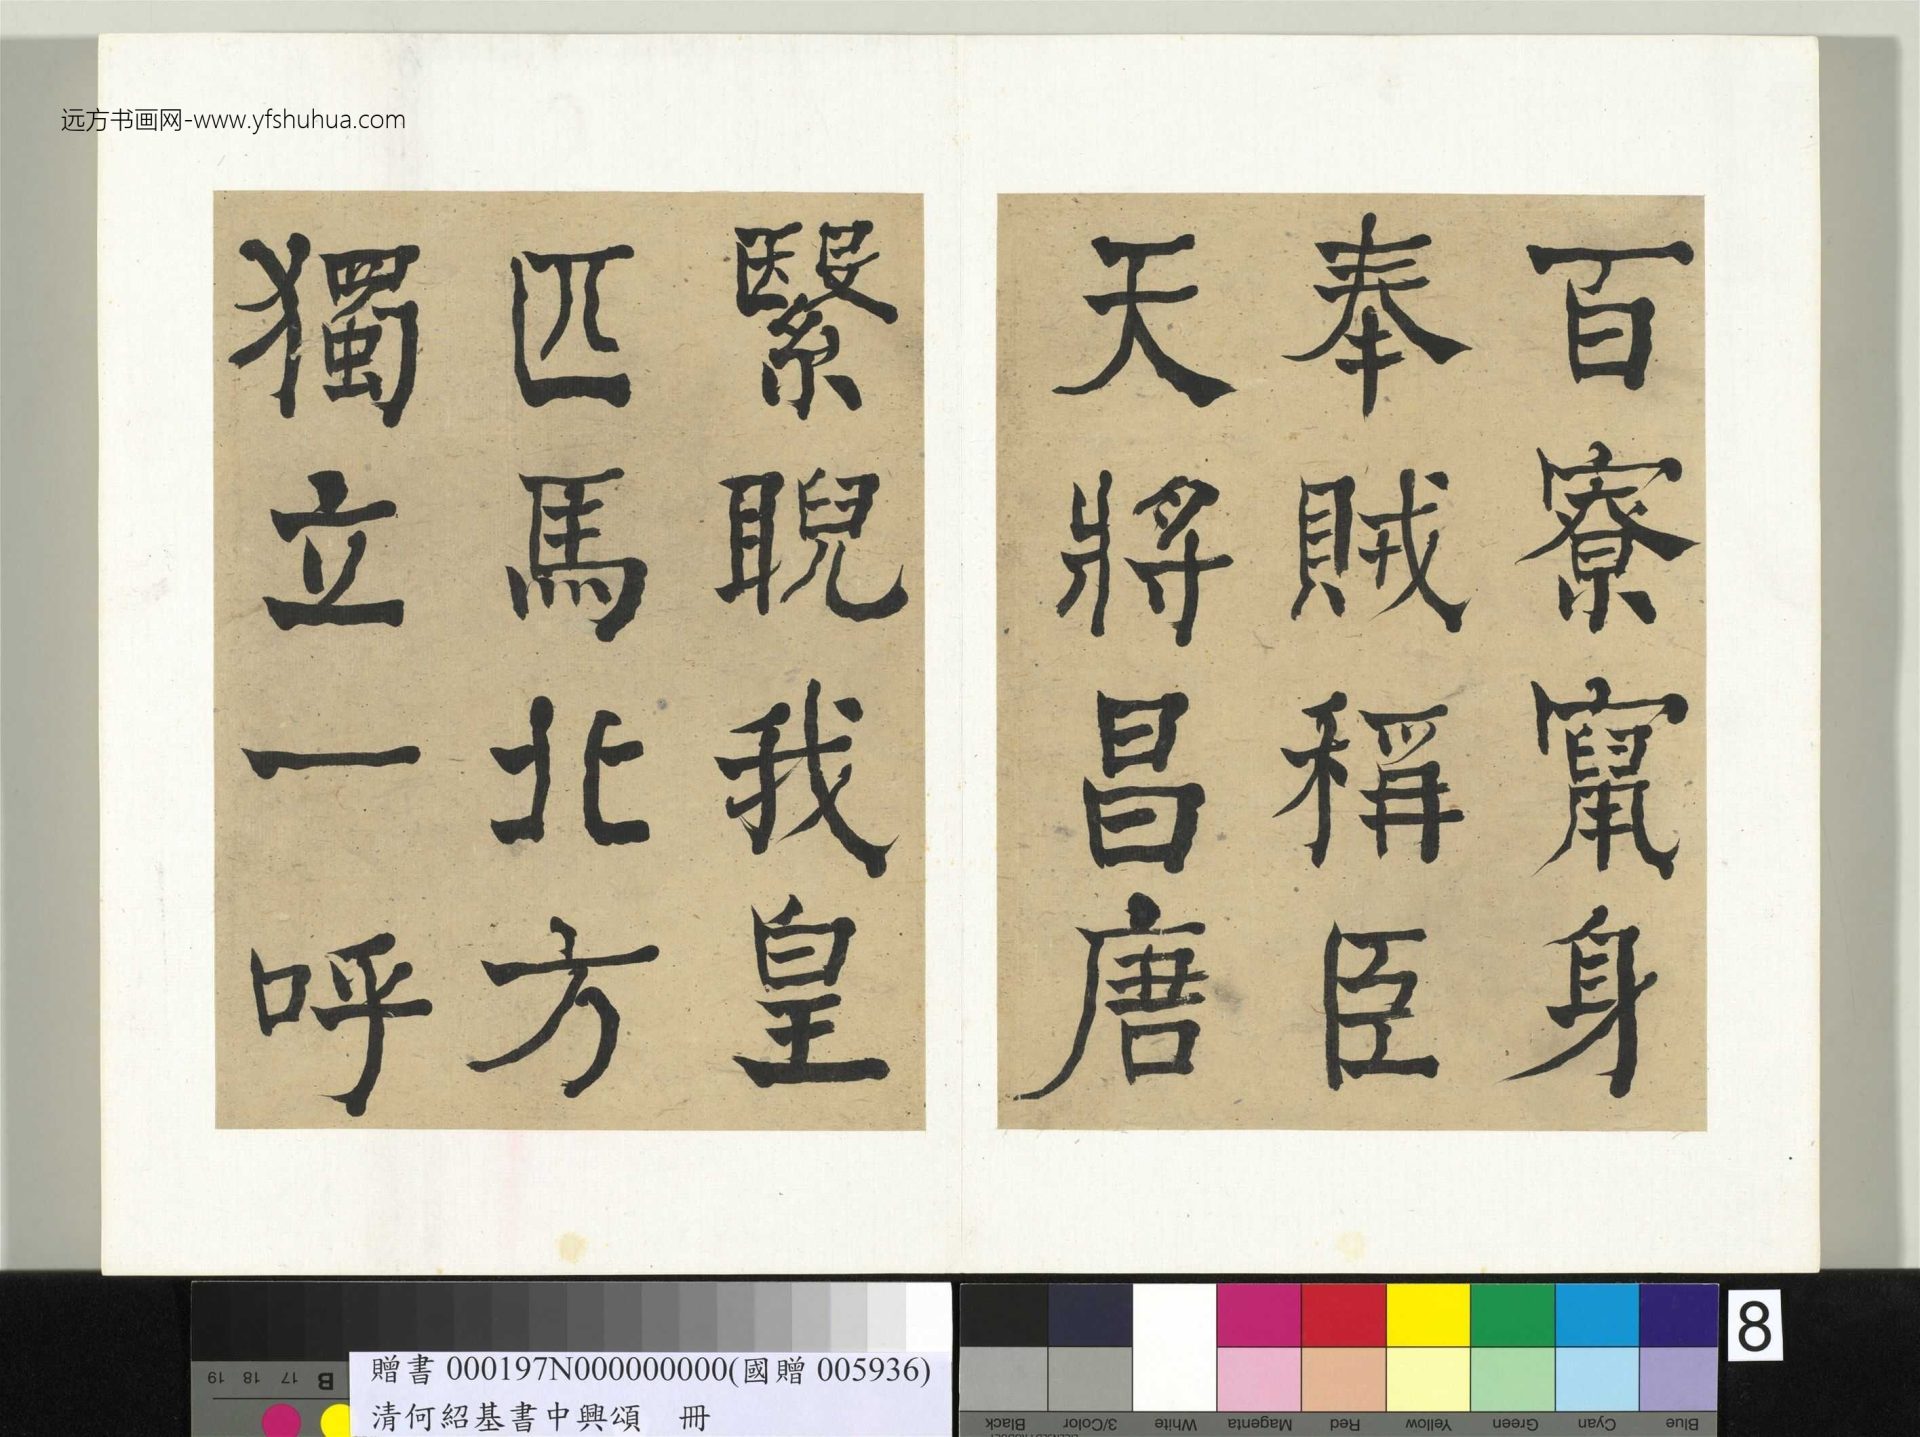 远方书画网-www.yfshuhua.com
百寮竄身
奉賊稱臣
天將昌唐
繄睨我皇
匹馬北方
獨立一呼
贈書 000197N000000000(國贈 005936)
清何紹基書中興頌 冊
8
19 18 17 B
Black 3/Color White Magenta Red Yellow Green Cyan Blue